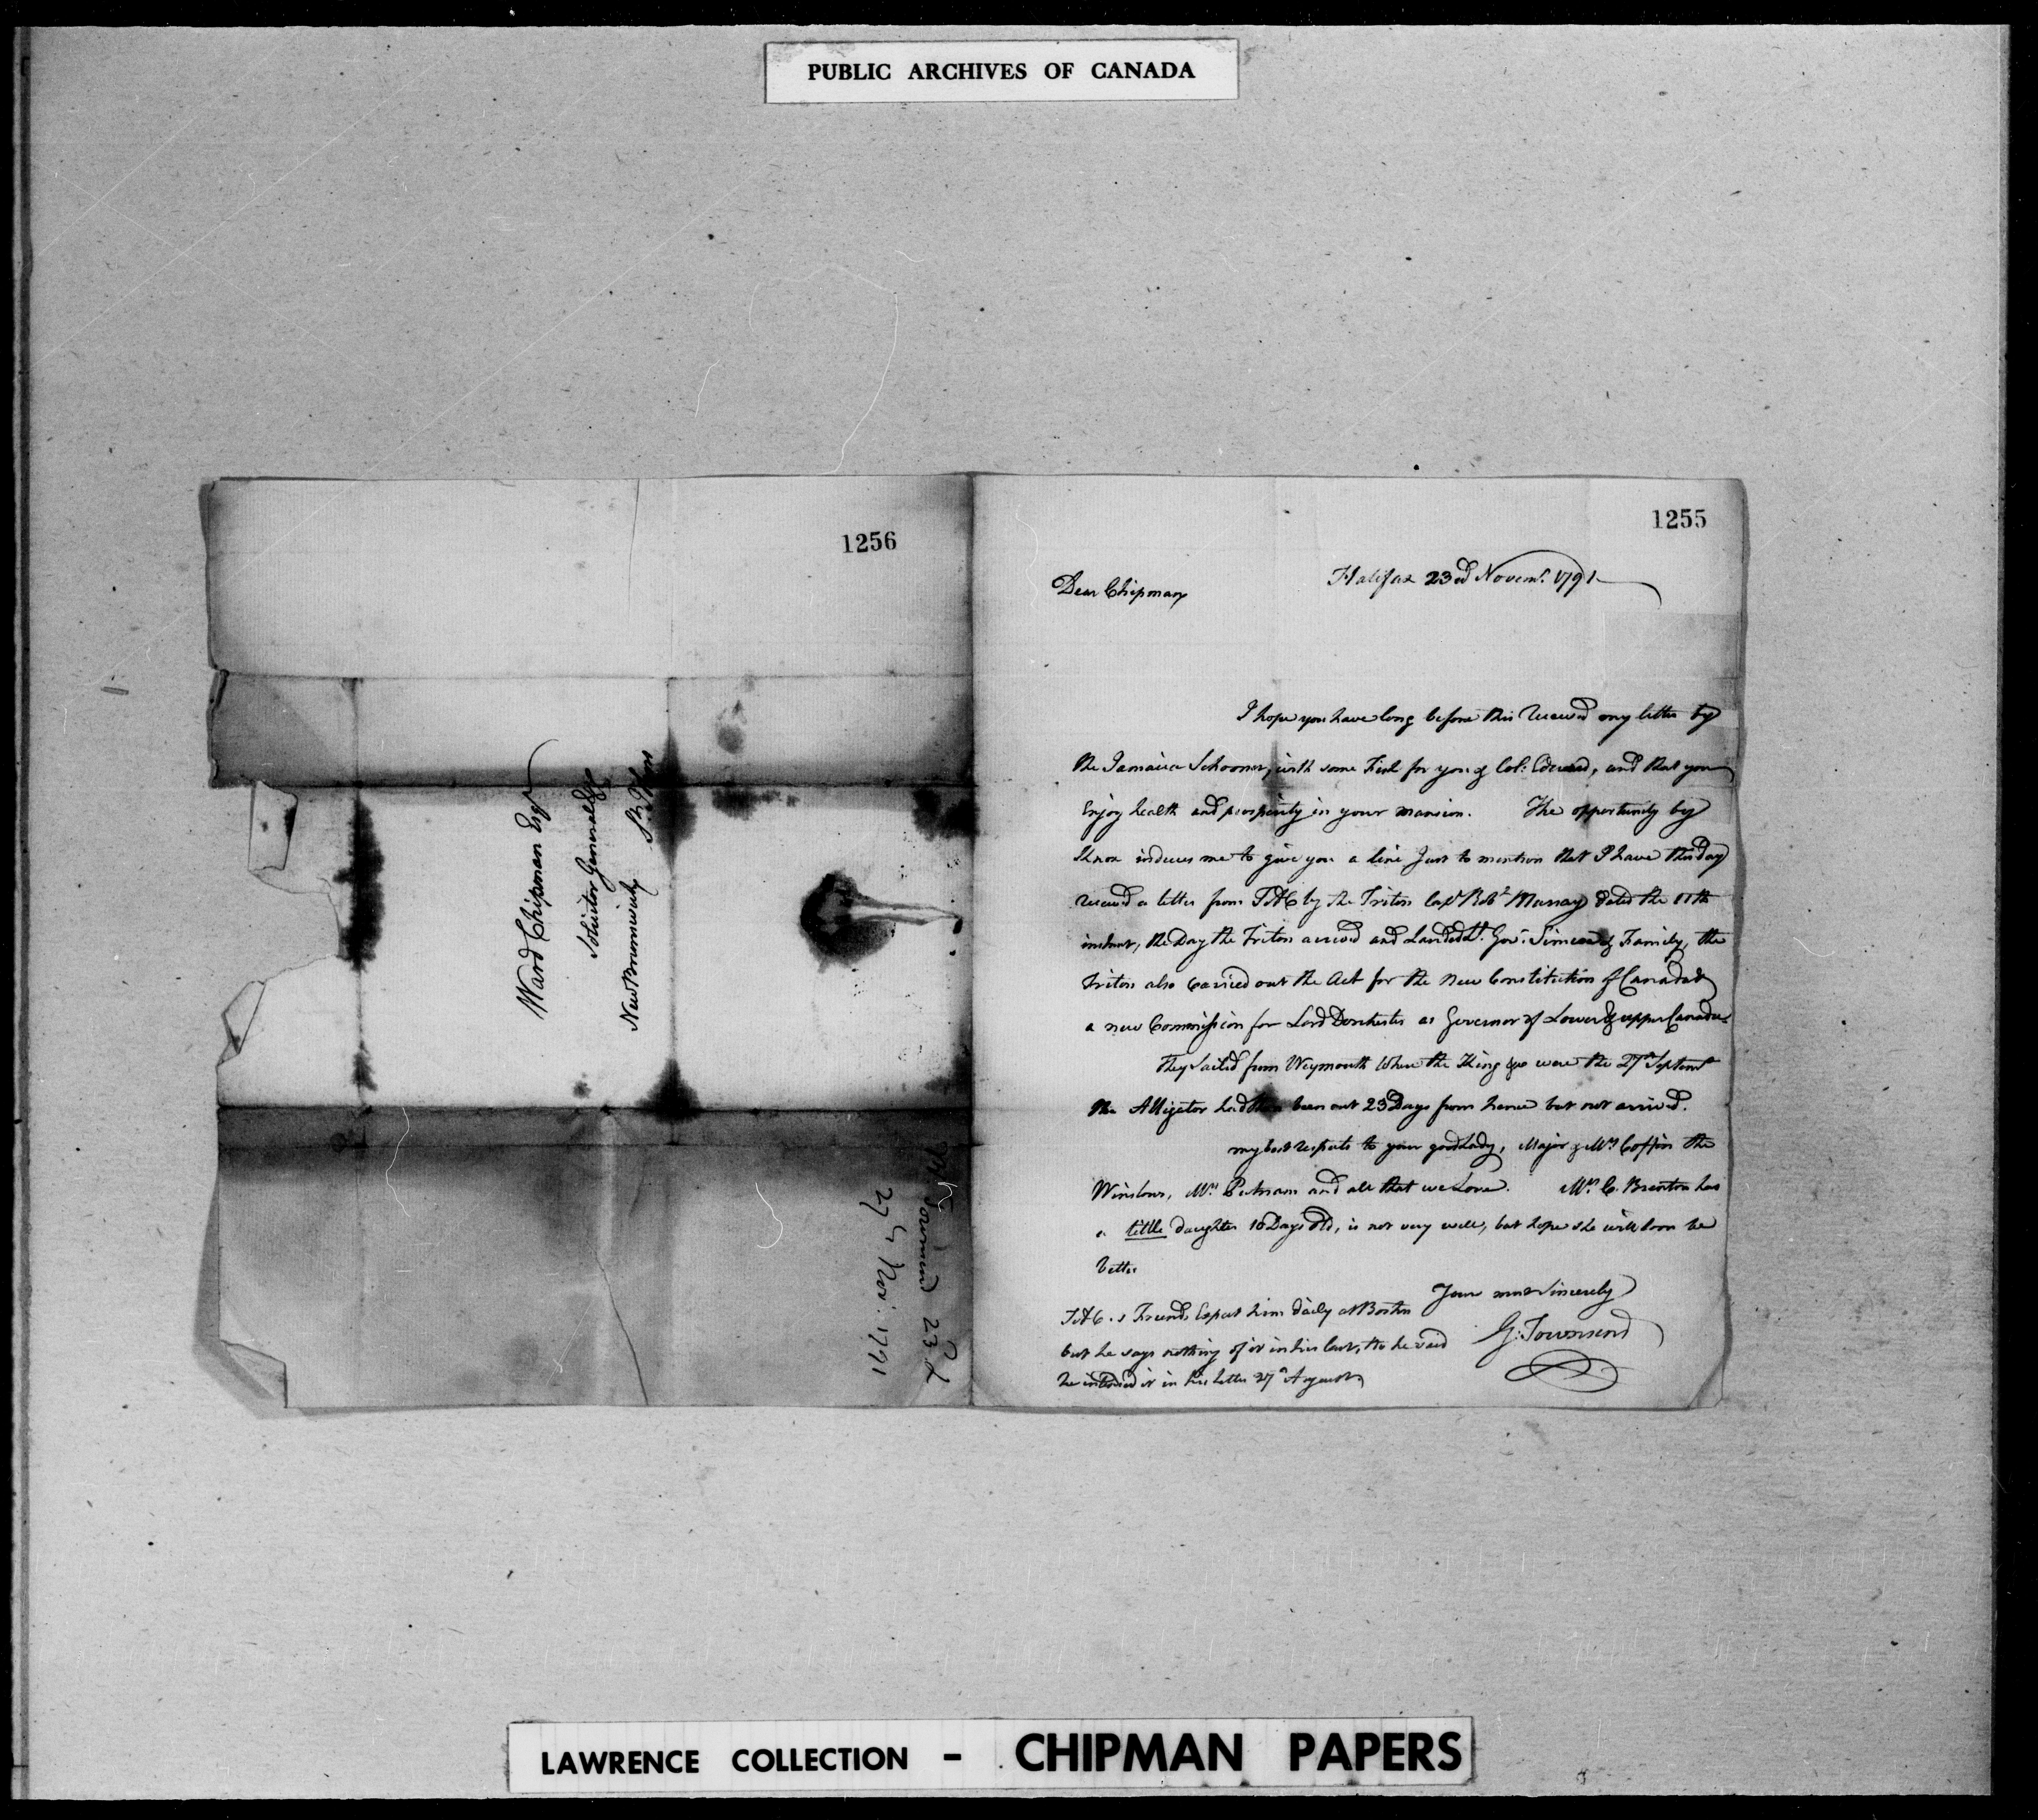 PUBLIC ARCHIVES OF CANADA
1256
Ward Chipman Esqr
Solicitor General &c
New Brunswick
Townsend 23d
27th Nov: 1791
1255
Halifax 23rd Novemr. 1791
Dear Chipman
I hope you have long before this received my letter by
the Jamaica Schooner, with some Fish for you & Col: Edward, and that you
Enjoy health and prosperity in your mansion. The opportunity by
Knox induces me to give you a line Just to mention that I have this day
received a letter from TAC by the Triton Capt Robt Murray dated the 11th
instant, the Day the Triton arrived and Landed Lt. Govr. Simcoe & Family, the
Triton also carried out the Act for the New Constitution of Canada &
a new Commission for Lord Dorchester as Governor of Lower & upper Canada.
They sailed from Weymouth where the King &c were the 27th Septemr
the Alligator had then been out 23 Days from hence but not arrived.
my best respects to your good Lady, Major & Mrs Coffin the
Winslows, Mrs Putnam and all that we Love. Mrs C. Brenton has
a little daughter 10 Days old, is not very well, but hope she will soon be
better
Yours most Sincerely
G: Townsend
TAC.s Friends Expect him daily at Boston
but he says nothing of it in his last, tho he said
he intended it in his letter 27th August
LAWRENCE COLLECTION - CHIPMAN PAPERS